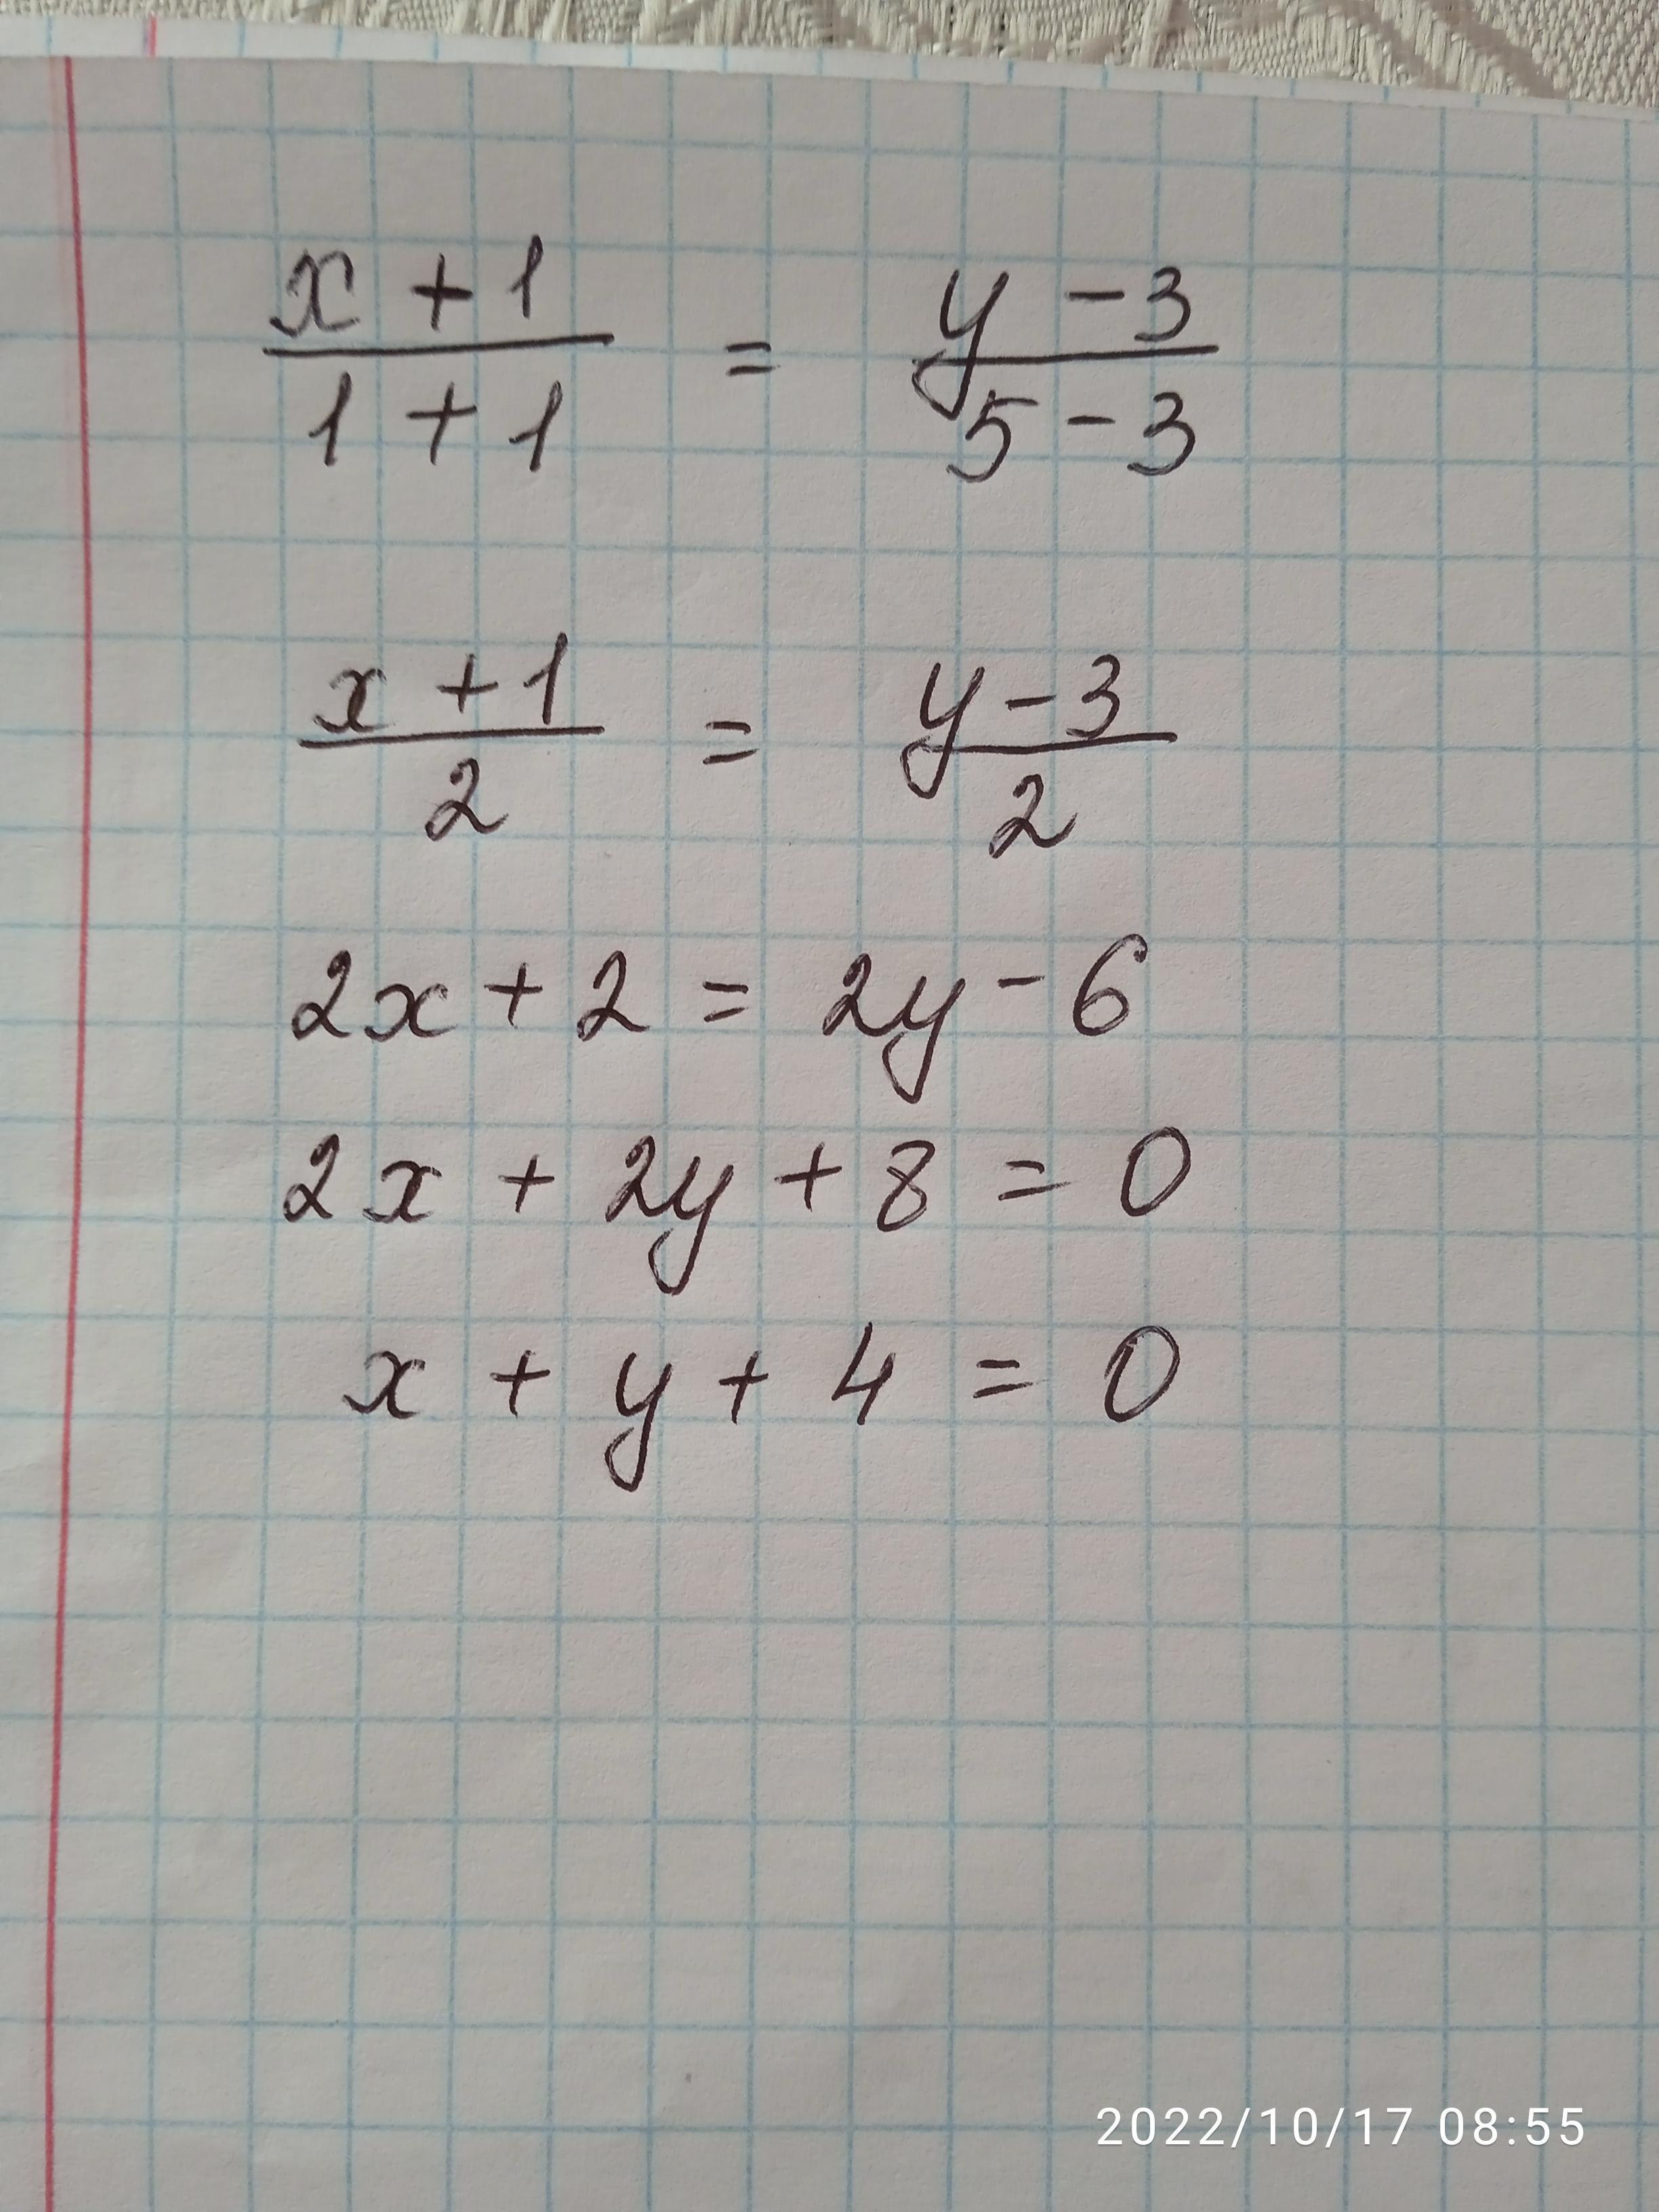 x + 1 / 1 + 1 = y - 3 / 5 - 3
x + 1 / 2 = y - 3 / 2
2x + 2 = 2y - 6
2x + 2y + 8 = 0
x + y + 4 = 0
2022/10/17 08:55